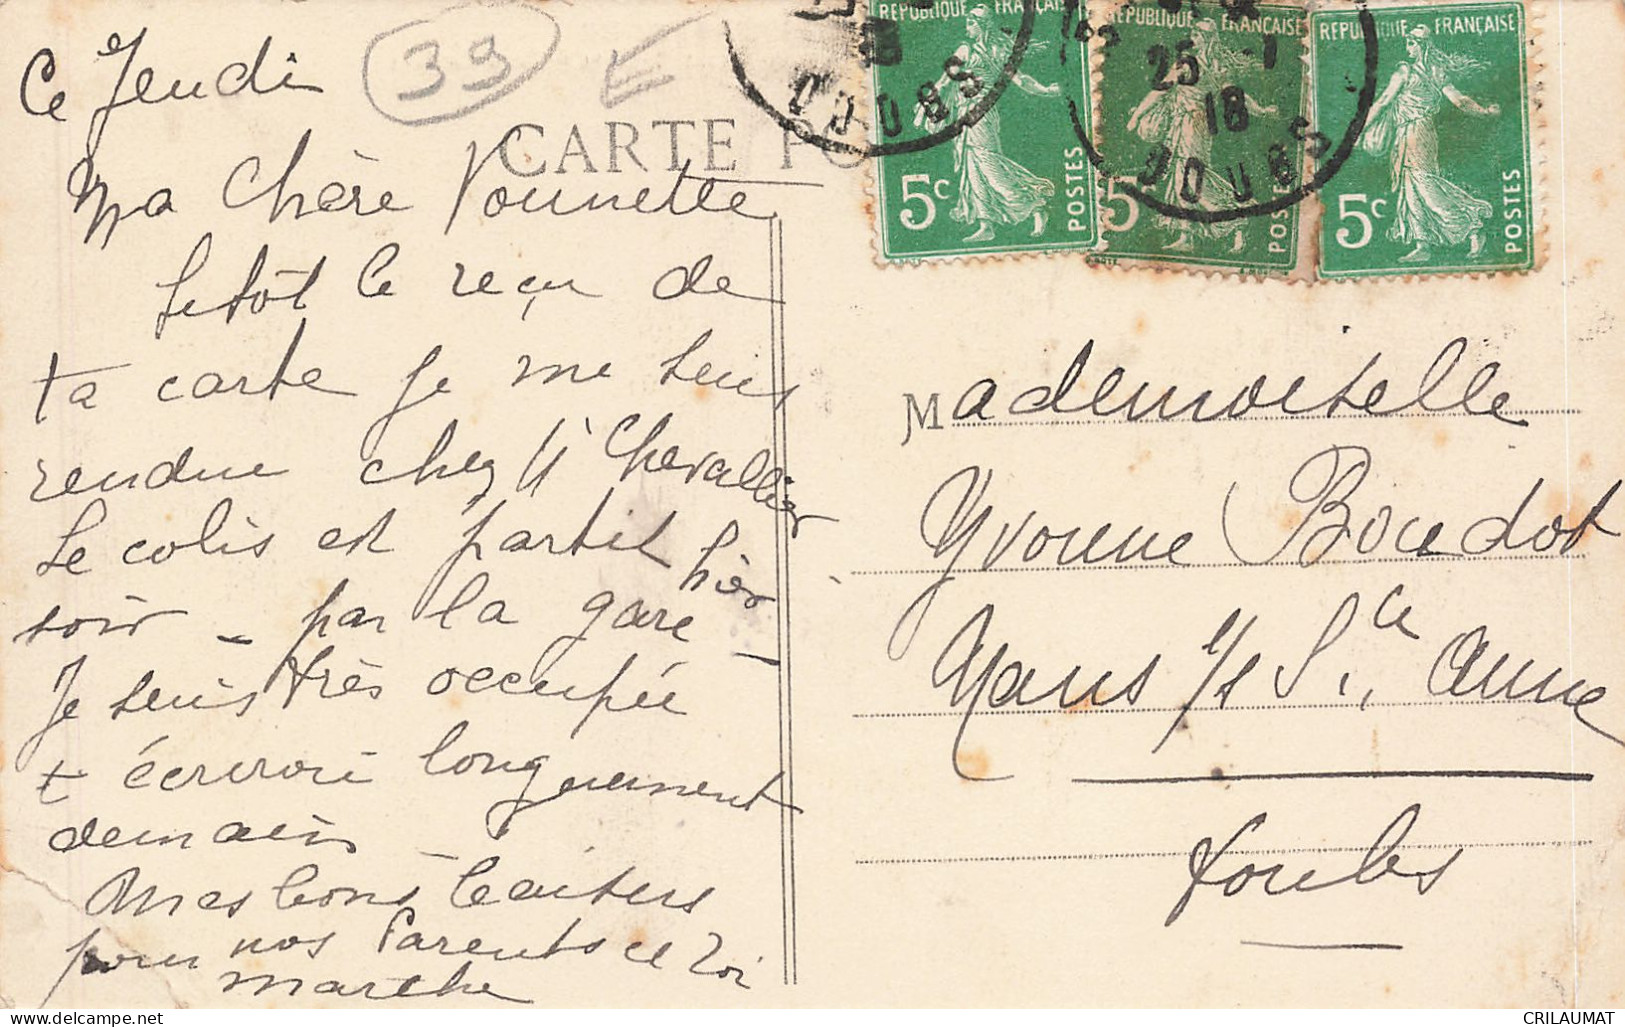 Ce Jeudi
39
CARTE PO
Ma Chère Vounette
Sitôt le reçu de
ta carte je me suis
rendue chez Chevallier
Le colis est partit hier
soir - par la gare -
Je suis très occupée
t écrirai longuement
demain
Mes bons baisers
pour nos Parents et Toi
Marthe
RÉPUBLIQUE FRANÇAISE
5c POSTES
RÉPUBLIQUE FRANÇAISE
5c POSTES
RÉPUBLIQUE FRANÇAISE
5c POSTES
18
DOUBS
25 -1
18
DOUBS
Mademoiselle
Yvonne Boudot
Nans s/s Ste Anne
Doubs
CRILAUMAT